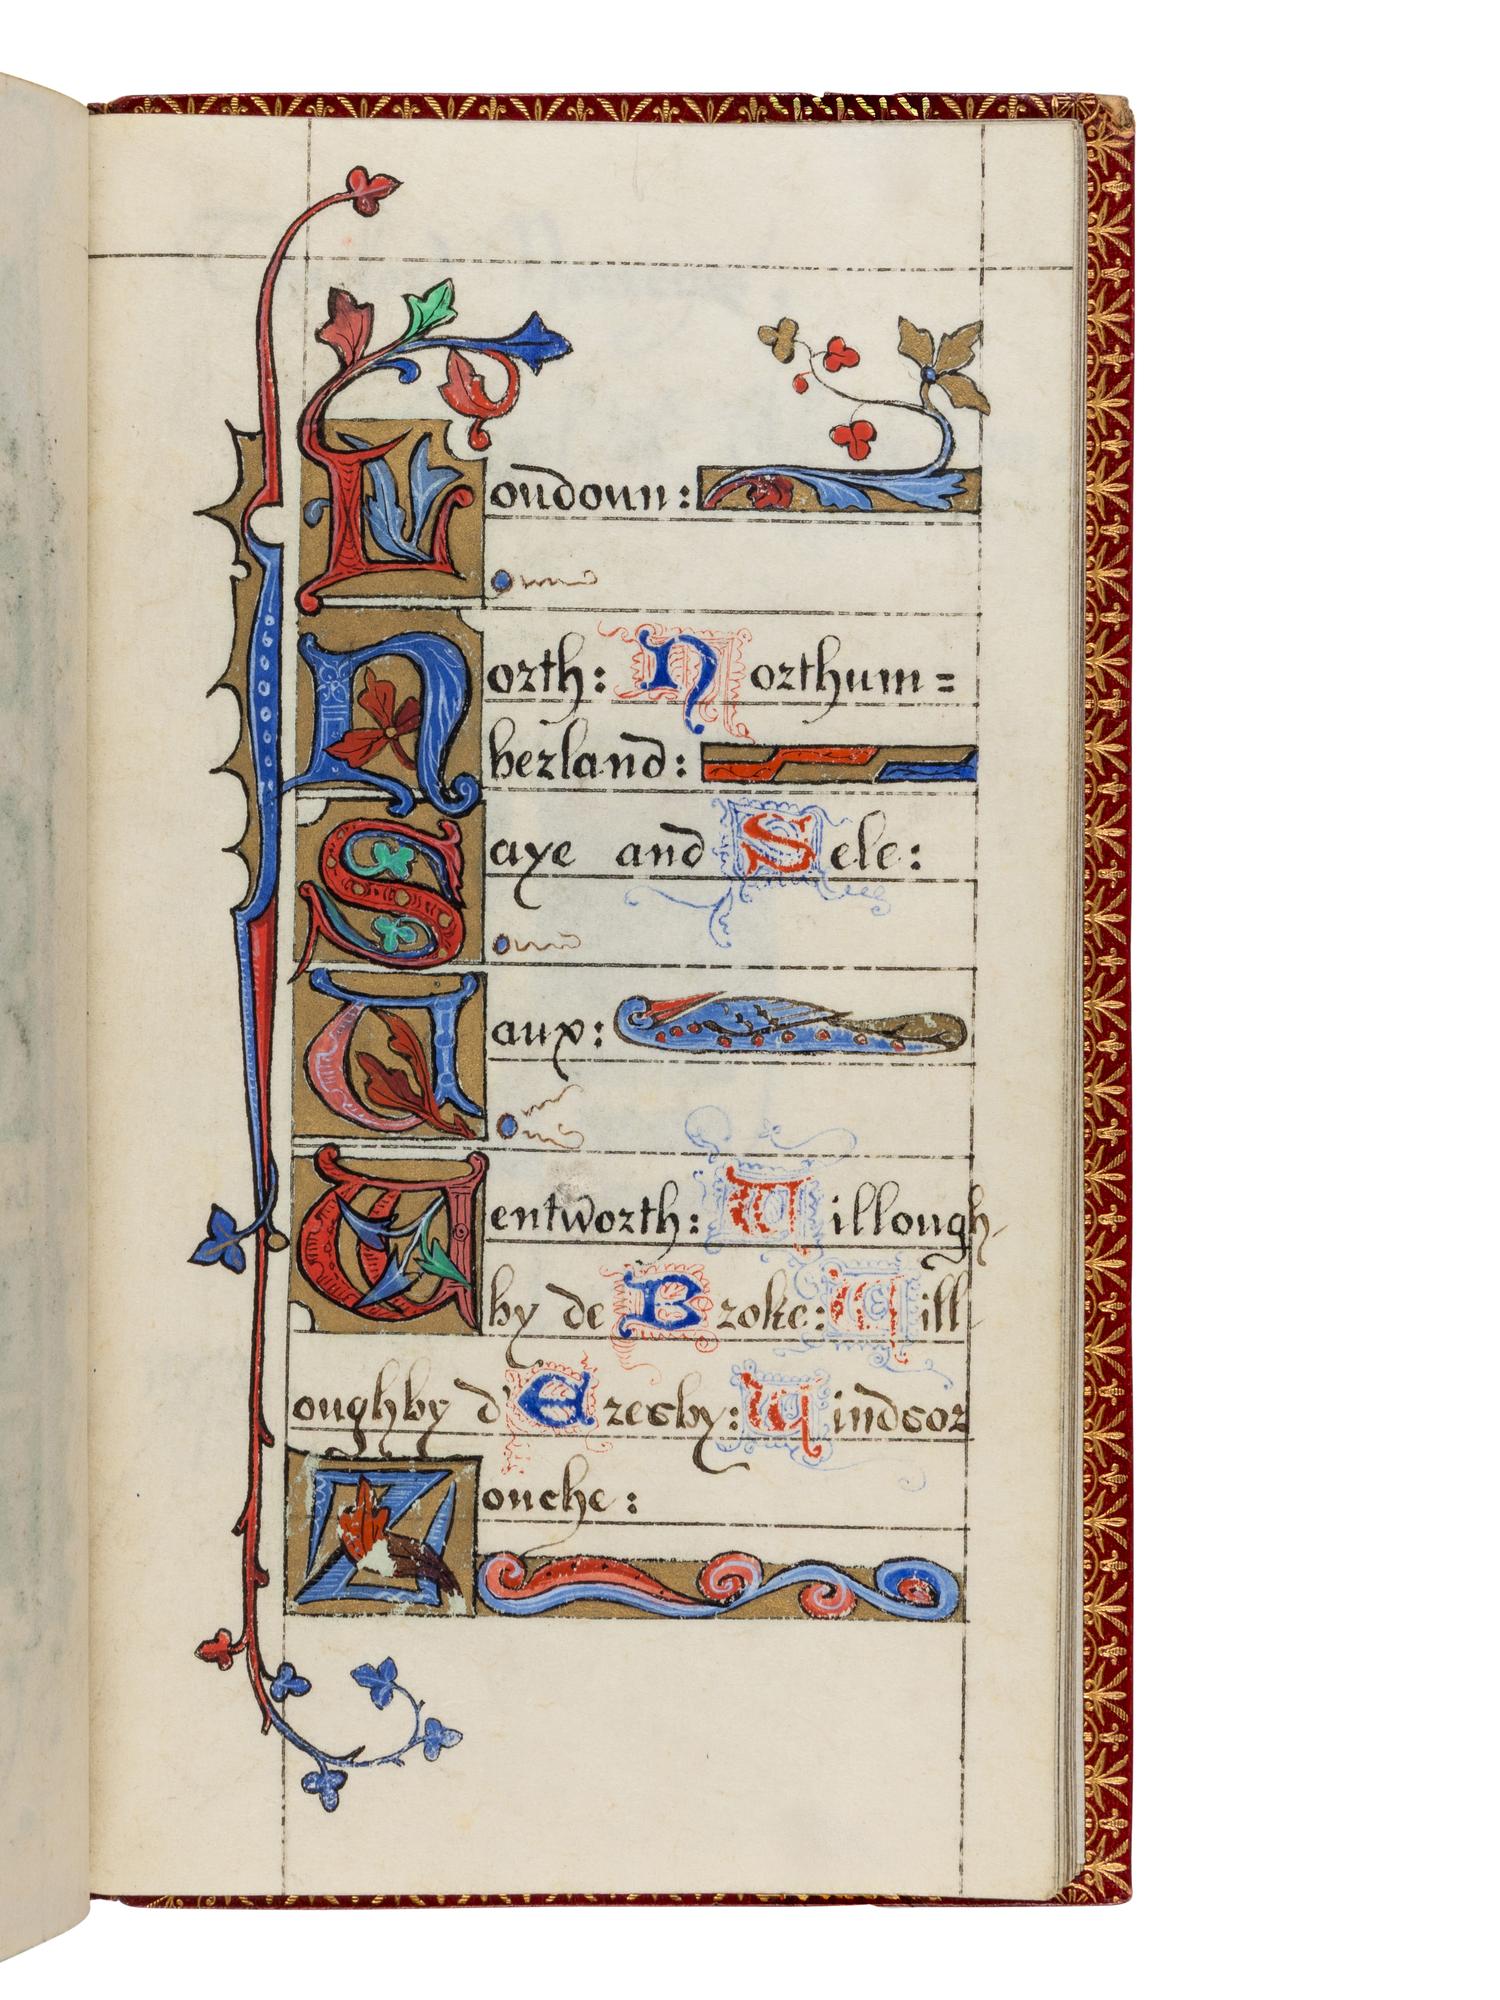 Loudoun:
North: Northum=
berland:
Saye and Sele:
Vaux:
Wentworth: Willough-
by de Broke: Will
oughby d'Eresby: Windsor
Zouche: